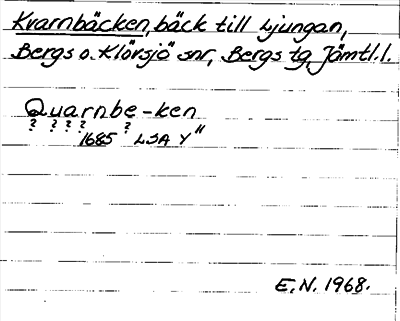 Kvarnbäcken, bäck till Ljungan,
Bergs o. Klövsjö snr, Bergs tg, Jämtl. l.
Quarnbe-ken
? ? ? ? ?
1685 LSA Y"
E.N. 1968.